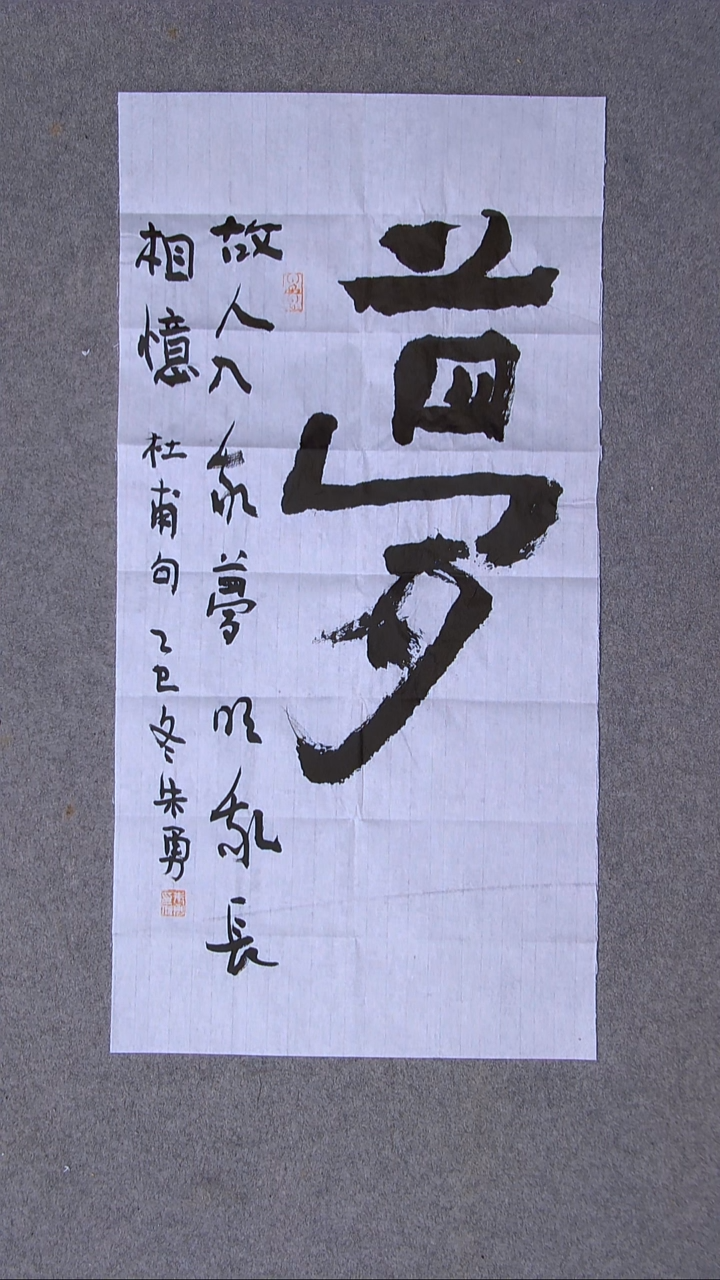 夢
故人入我夢明我長
相憶 杜甫句 乙巳冬朱勇